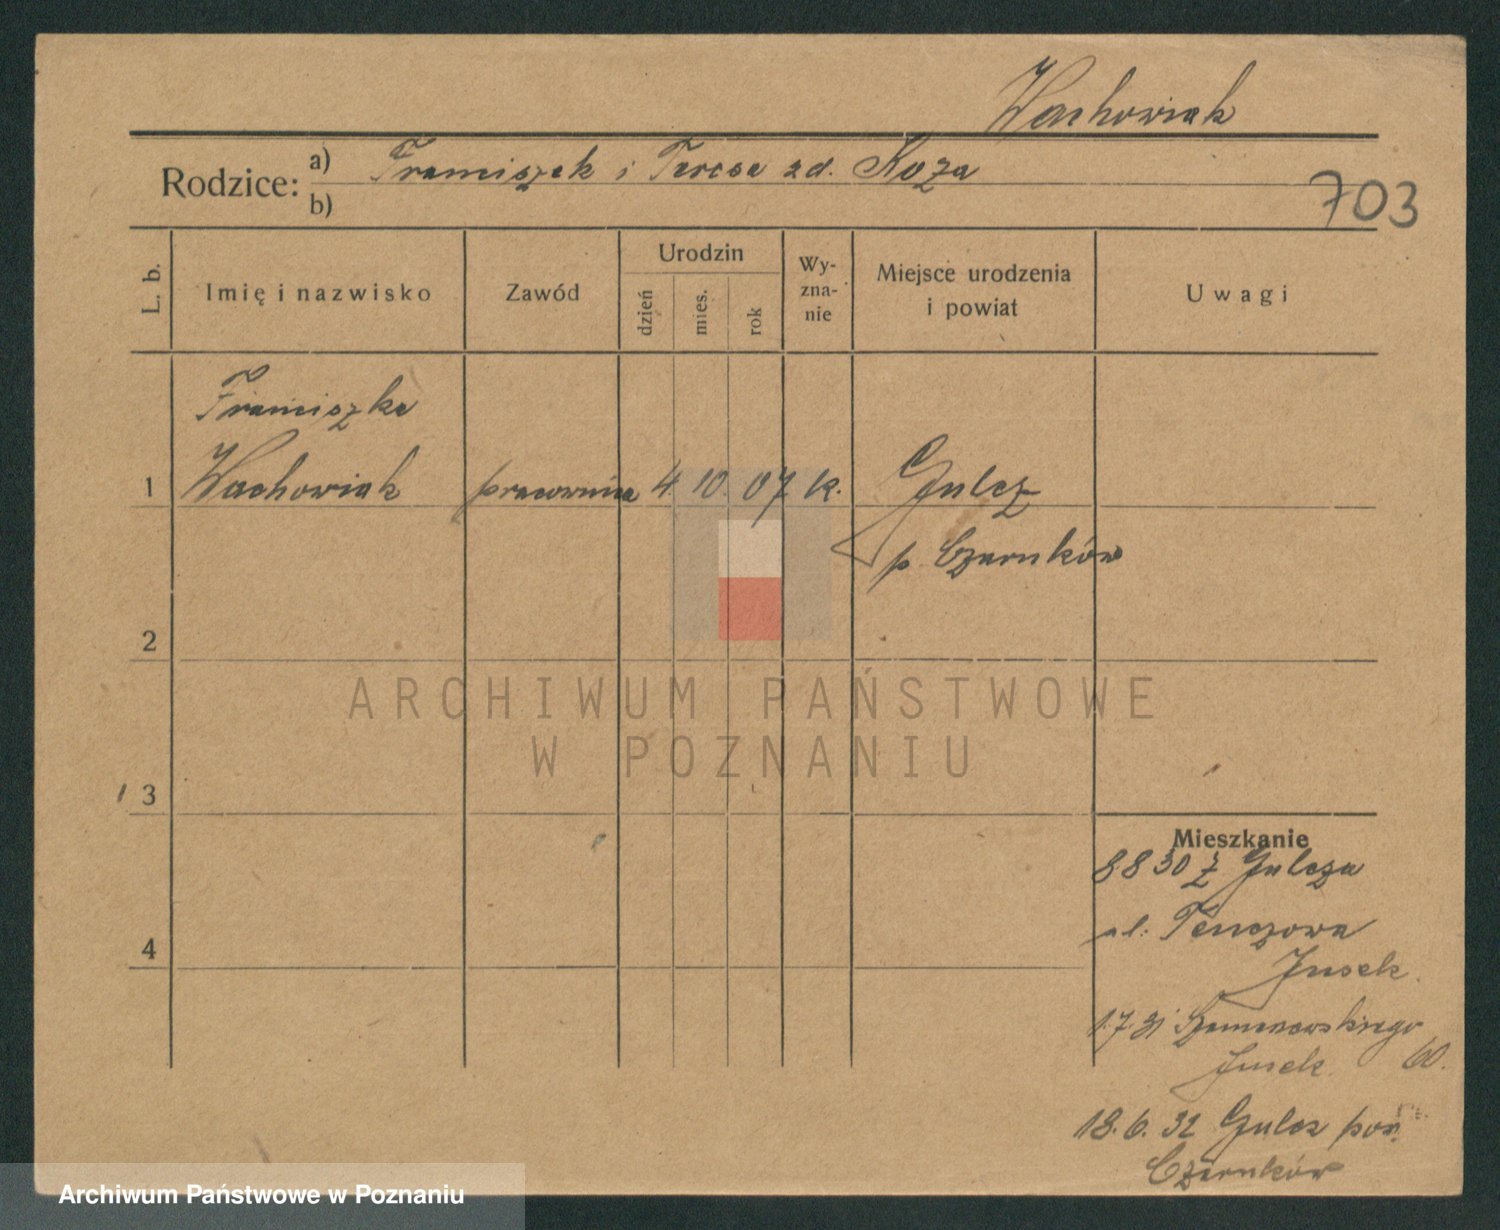 Wachowiak
Rodzice: a) Franciszek i Teresa zd. Koza
b)
703
L. b.
Imię i nazwisko
Zawód
Urodzin
dzień
mies.
rok
Wy-
zna-
nie
Miejsce urodzenia
i powiat
Uwagi
Franciszka
1 Wachowiak pracownica 4. 10. 07 k. Gulcz
p. Czarnków
2
ARCHIWUM PAŃSTWOWE
W POZNANIU
3
Mieszkanie
8 8 30 z Gulcza
ul.
Jusek.
1.7.31 Szamarzewskiego
Jusek. 60.
4
18.6.32 Gulcz pow.
Czarnków
Archiwum Państwowe w Poznaniu